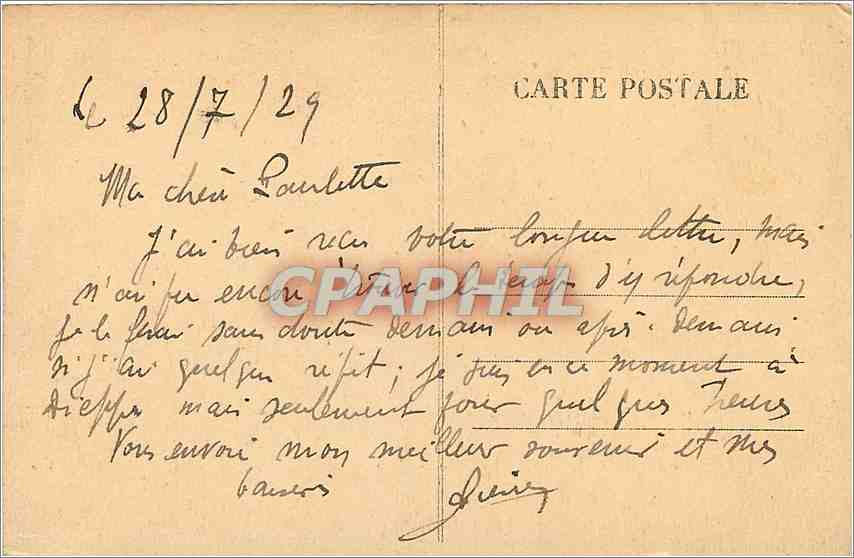 CARTE POSTALE
Le 28/7/29
Ma chère Paulette
J'ai bien reçu votre longue lettre, mais
n'ai pu encore trouver le temps d'y répondre,
je le ferai sans doute demain ou après-demain
si j'ai quelque répit; je suis en ce moment à
Dieppe mais seulement pour quelques heures
Vous envoie mon meilleur souvenir et mes
baisers
Pierre
CPAPHIL